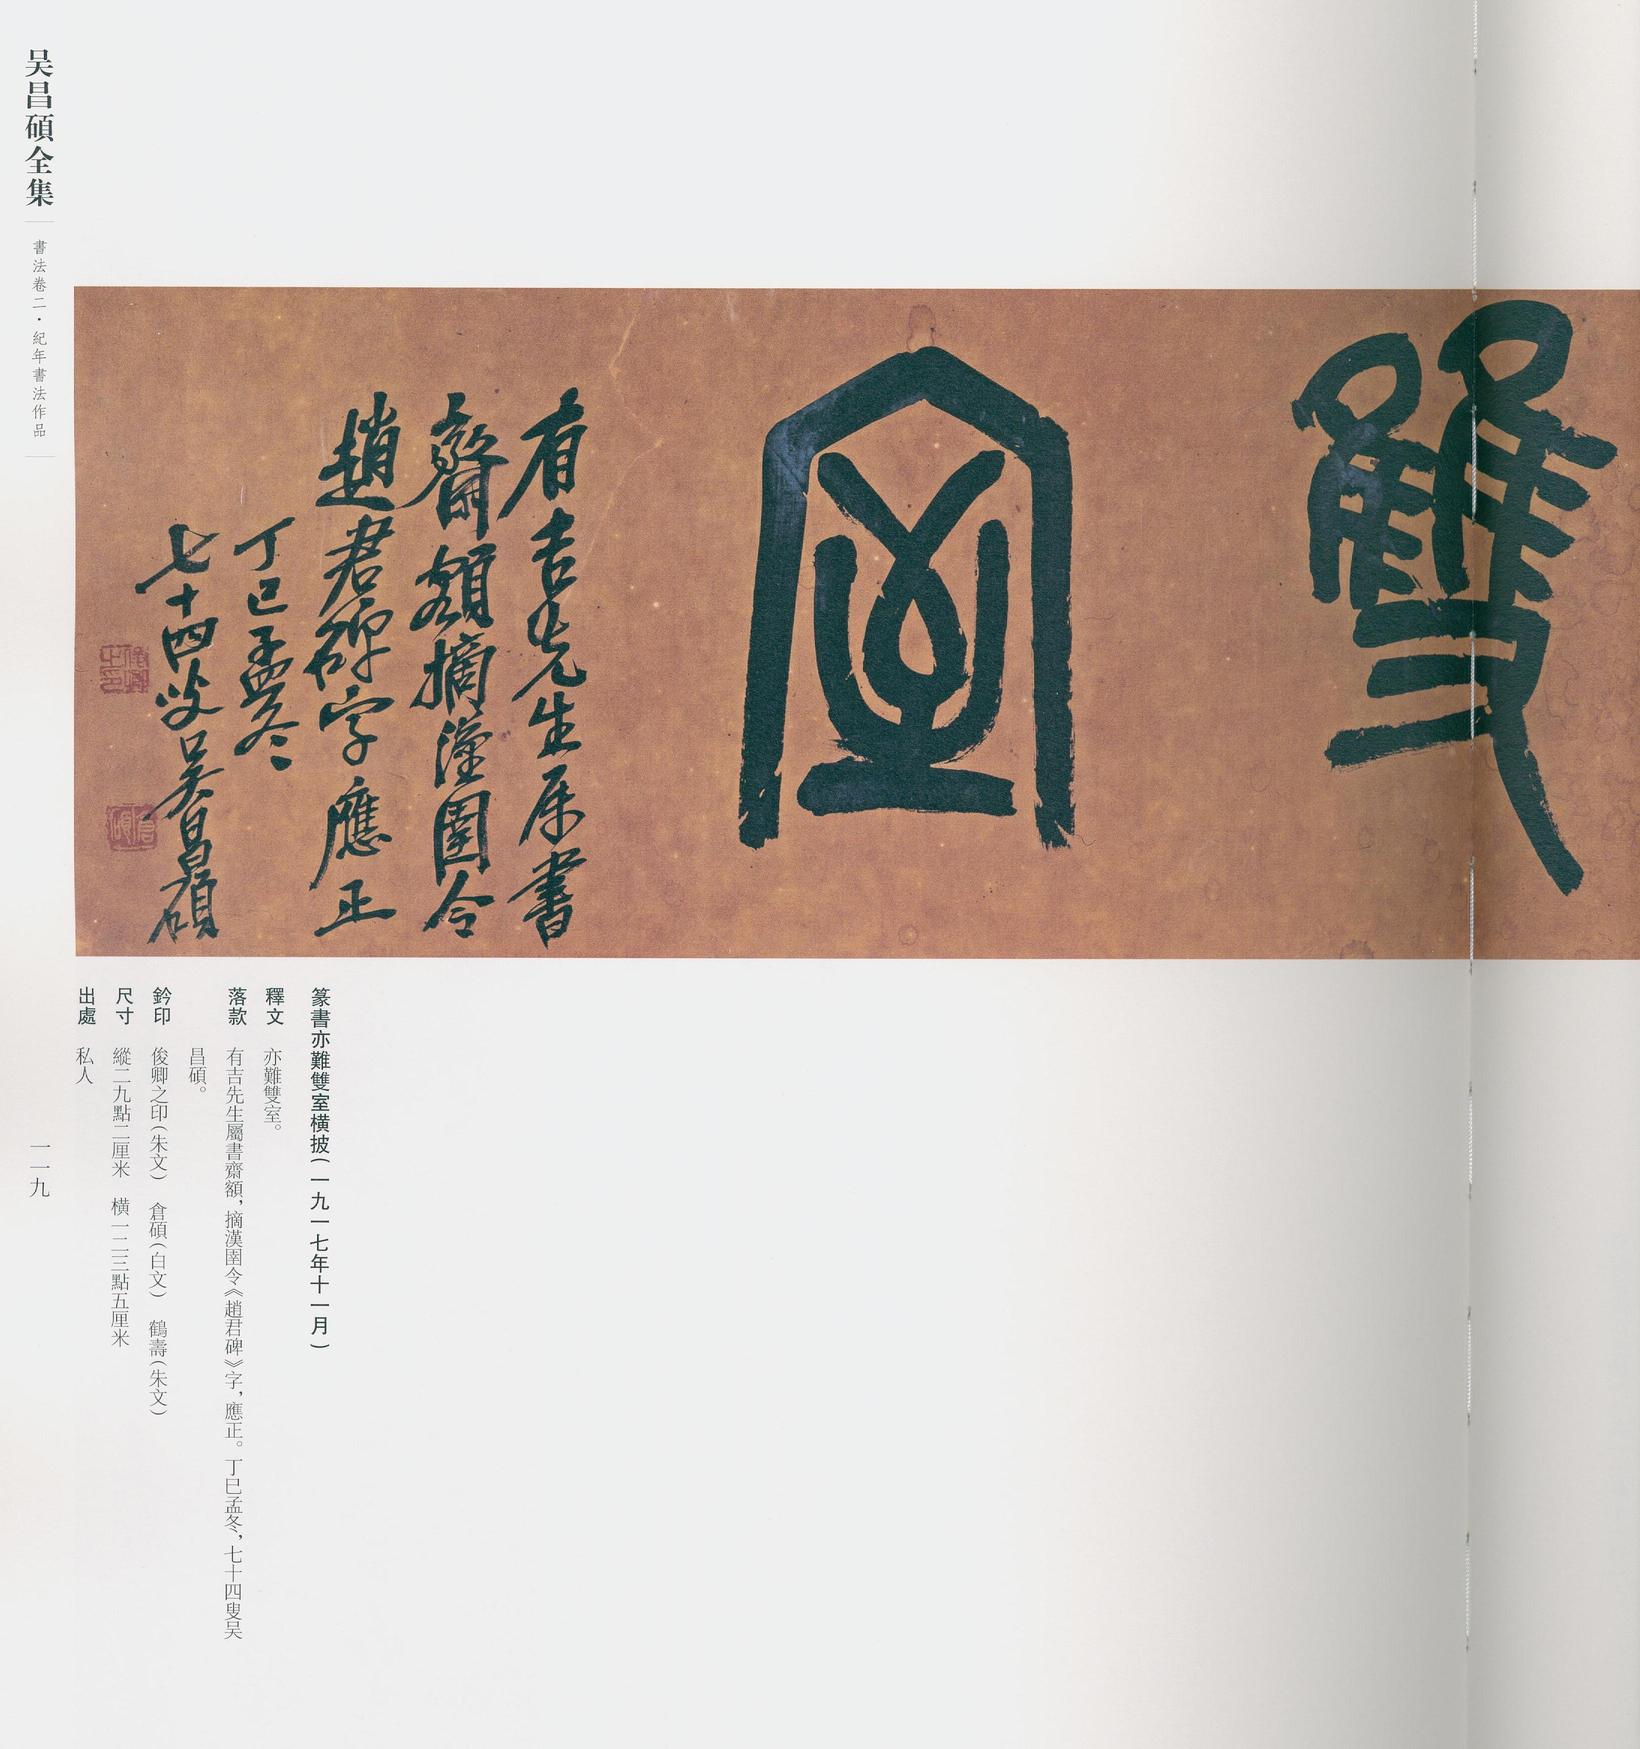 雙
室
有吉先生屬書
齋額摘漢圉令
趙君碑字應正
丁巳孟冬
七十四叟吳昌碩
篆書亦難雙室橫披(一九一七年十一月)
釋文 亦難雙室。
落款 有吉先生屬書齋額，摘漢圉令《趙君碑》字，應正。丁巳孟冬，七十四叟吴
昌碩。
鈐印 俊卿之印(朱文) 倉碩(白文) 鶴壽(朱文)
尺寸 縱二九點二厘米 橫一二三點五厘米
出處 私人
吴昌碩全集
書法卷二·紀年書法作品
一一九
俊卿之印
倉碩